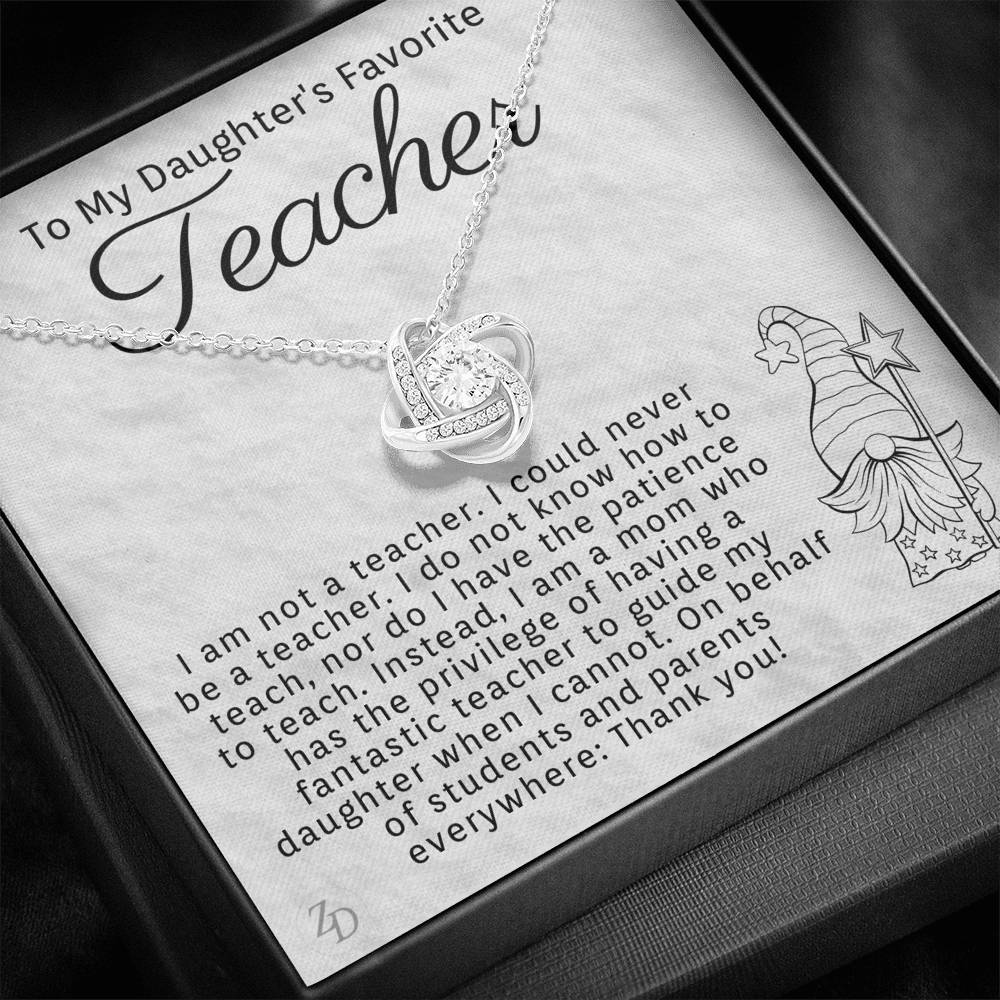 To My Daughter's Favorite
Teacher
I am not a teacher. I could never
be a teacher. I do not know how to
teach, nor do I have the patience
to teach. Instead, I am a mom who
has the privilege of having a
fantastic teacher to guide my
daughter when I cannot. On behalf
of students and parents
everywhere: Thank you!
ZD